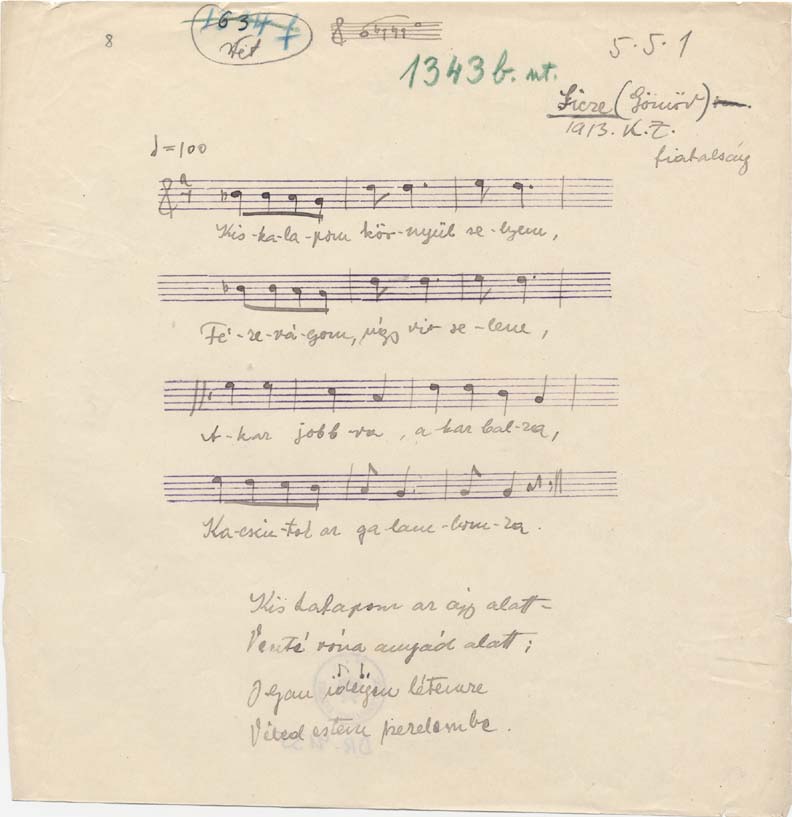 8
1634
5.5.1
1343 b. nt.
Licze (Gömör)
1913. K.Z.
fiatalság
♩=100
Kis-ka-la-pom kör-nyül se-lyem,
Fé-re-vá-gom, úgy vi- se-lem,
A-kar jobb-ra, a-kar bal-ra,
Ka-csin-tok az ga-lam-bom-ra.
Kis kalapom az ágy alatt
vóna anyád alatt;
idejen
Véled estem szerelembe.